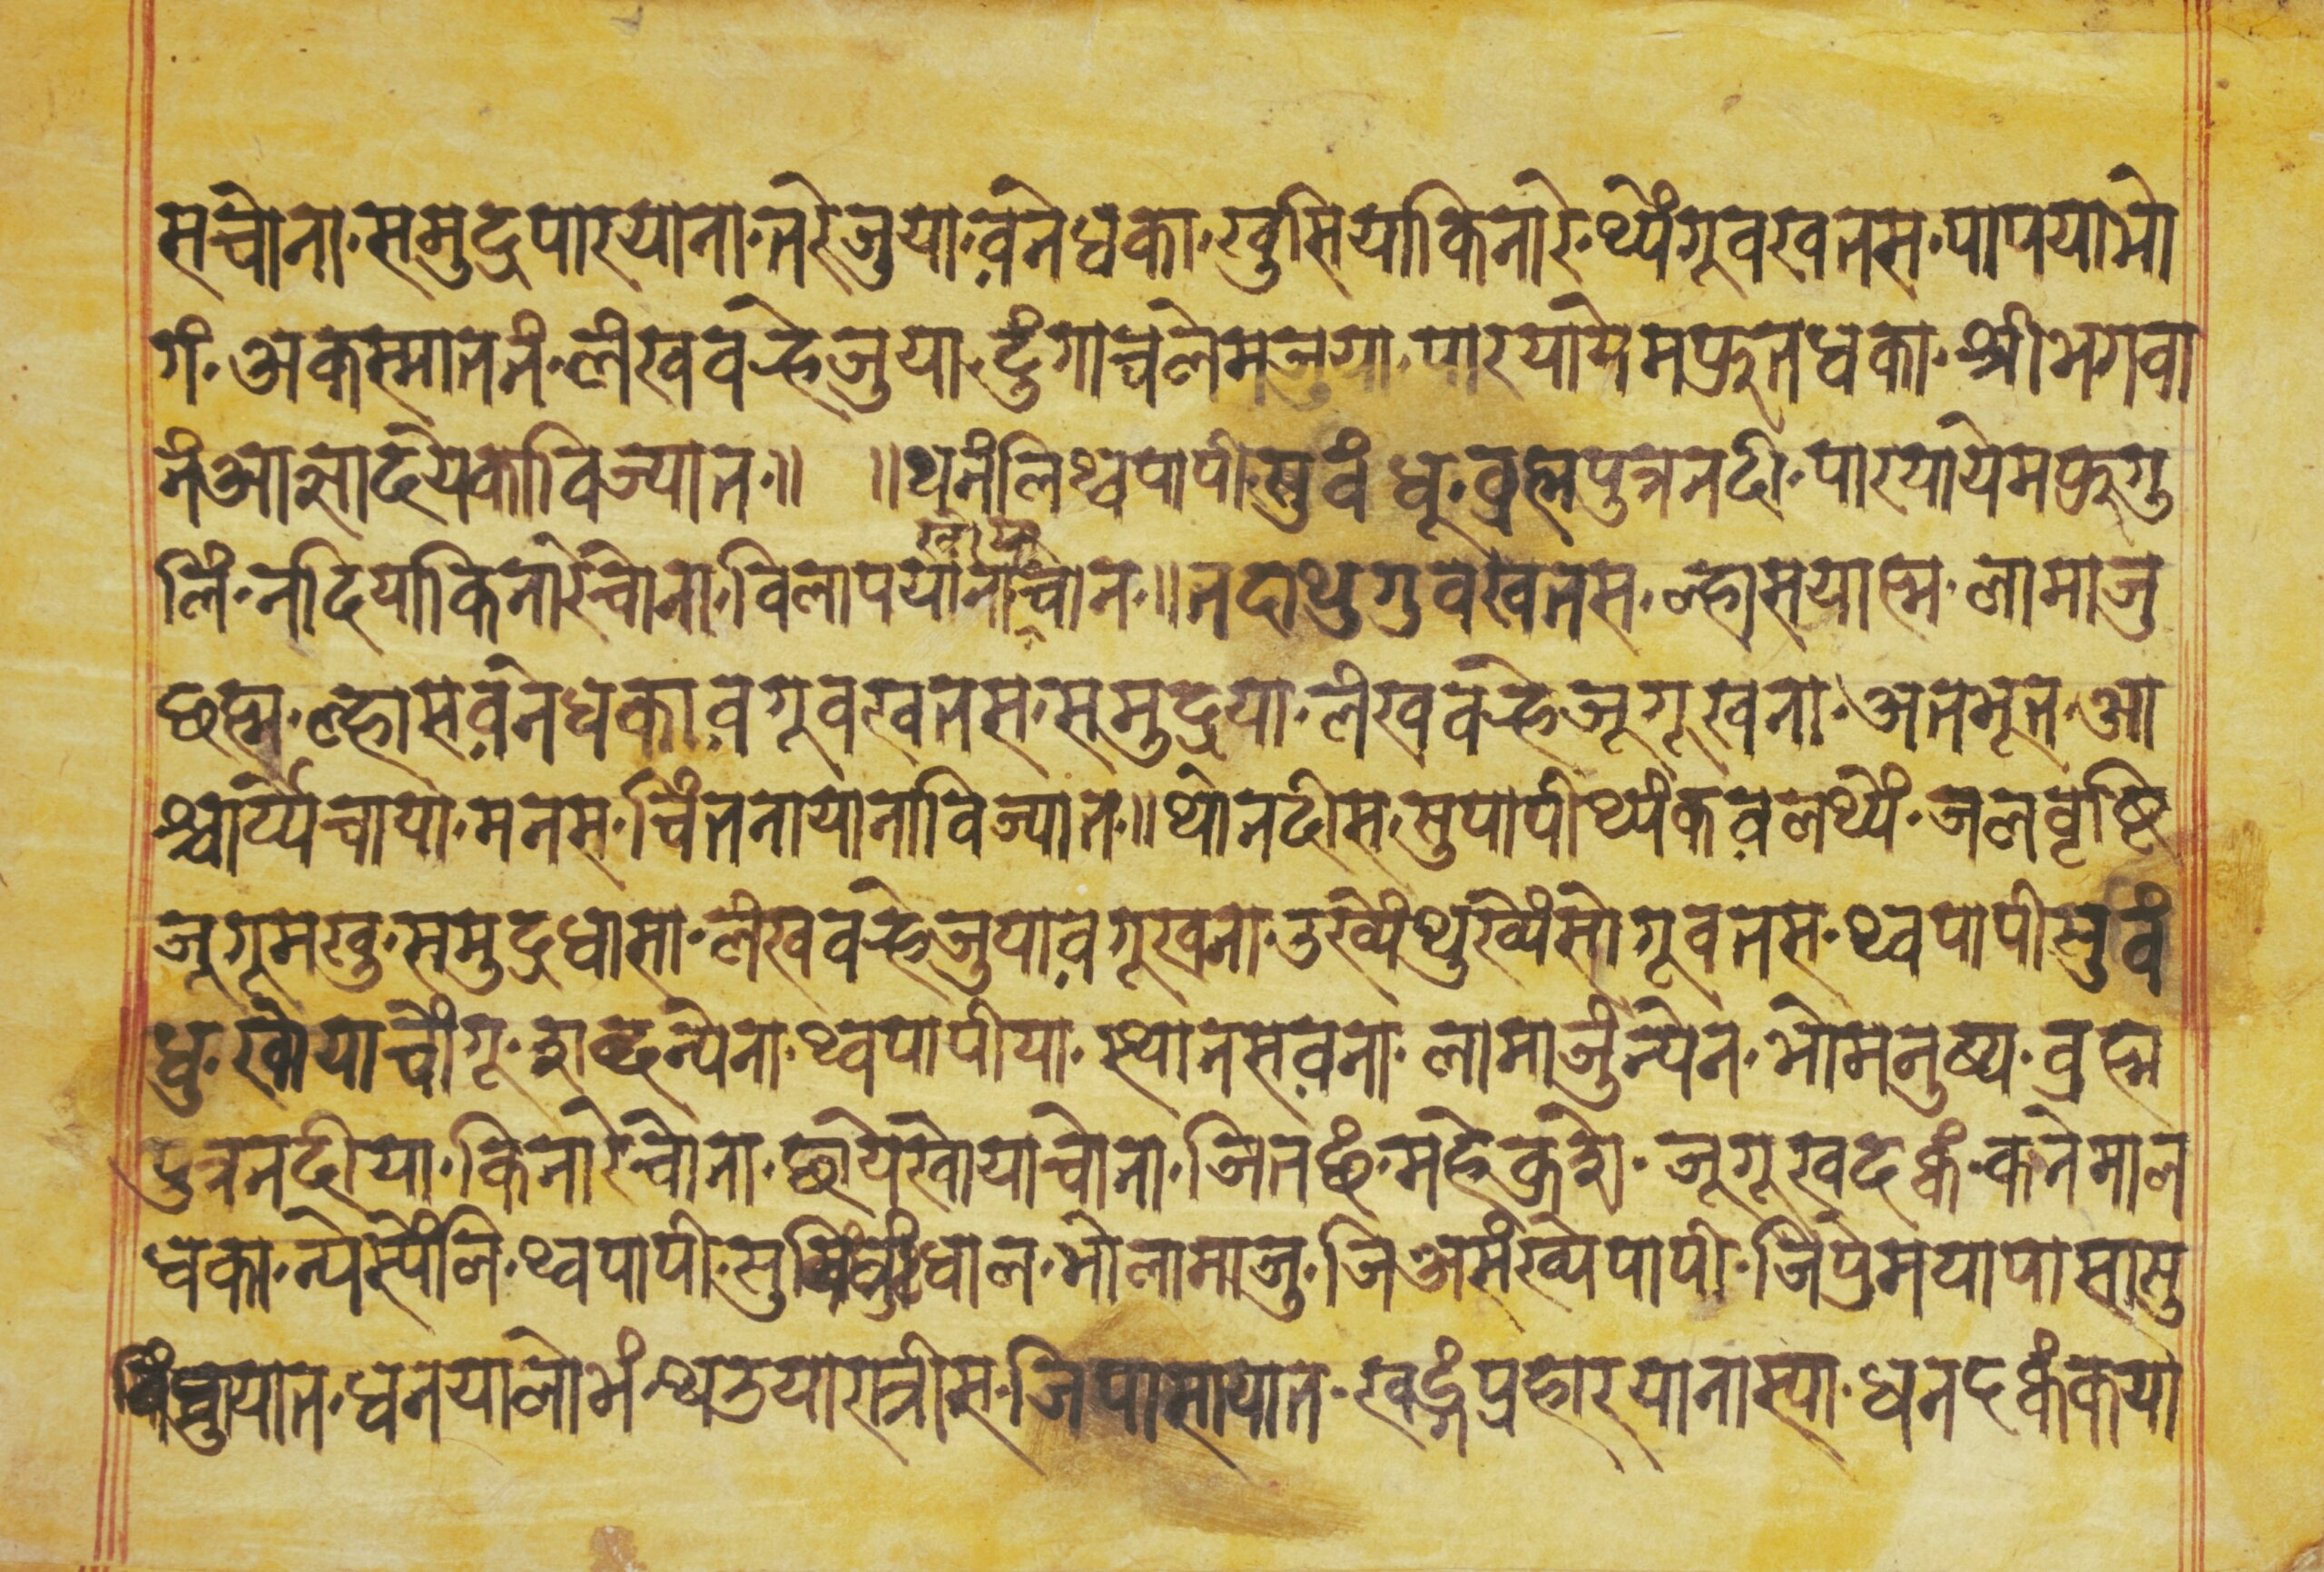 सच्चोना॰समुद्रपारयाना॰तरेजुया॰व़नेधका॰खुसियाकिनारे॰थ्येंगूवखतस॰पापयाभो
गं॰अकस्मातनं॰लंखवह्रेजुया॰दुंगाचलेमजुया॰पारयायेमफुतधका॰श्रीभगवा
नंआज्ञादयेकाविज्यात॰॥ ॥थनंलिथ्वपापी॰सुवंधू॰व्रह्मपुत्रनदी॰पारयायेमफुगु
लिं॰नदियाकिनारेचोना॰विलापयाना खोया चोन॰॥तदाथुगुवखतस॰ल्हासयाह्म॰लामाजु
छह्म॰ल्हासव़नेधकाव़गूवखतस॰समुद्रया॰लंखवह्रेजूगूखना॰अतभूत॰आ
श्चार्य्यचाया॰मनस॰चिंतनायानाविज्यात॰॥थोनदीस॰सुपापीथ्यंकव़लथ्यें॰जलवृष्टि
जूगूमखु॰समुद्रधासा॰लंखवह्रेजुयाव़गूखना॰उख्येंथुख्येंसोगूवतस॰थ्वपापीसुवं
धु॰खोयाचोंगू॰शव्दन्येना॰थ्वपापीया॰स्थानसव़ना॰लामाजुंन्येन॰भोमनुष्य॰व्रह्म
पुत्रनदीया॰किनारेचोना॰छायेखोयाचोना॰जितछं॰महेक्रशे॰जूगूखदक्वं॰कनेमाल
धका॰न्येस्येंलि॰थ्वपापी॰सु धाल॰भोलामाजु॰जिअसंख्येपापी॰जिंप्रेमयापासासु
यात॰धनयालोभं॰थ्वउयारात्रीस॰जिपासायात॰खड्गंप्रहारयानास्या॰धनदक्वंकया